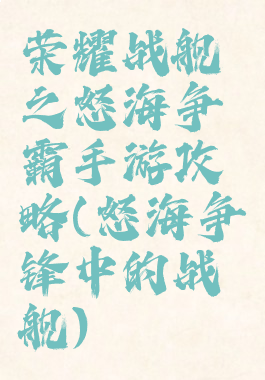 荣耀战舰
之怒海争
霸手游攻
略(怒海争
锋中的战
舰)